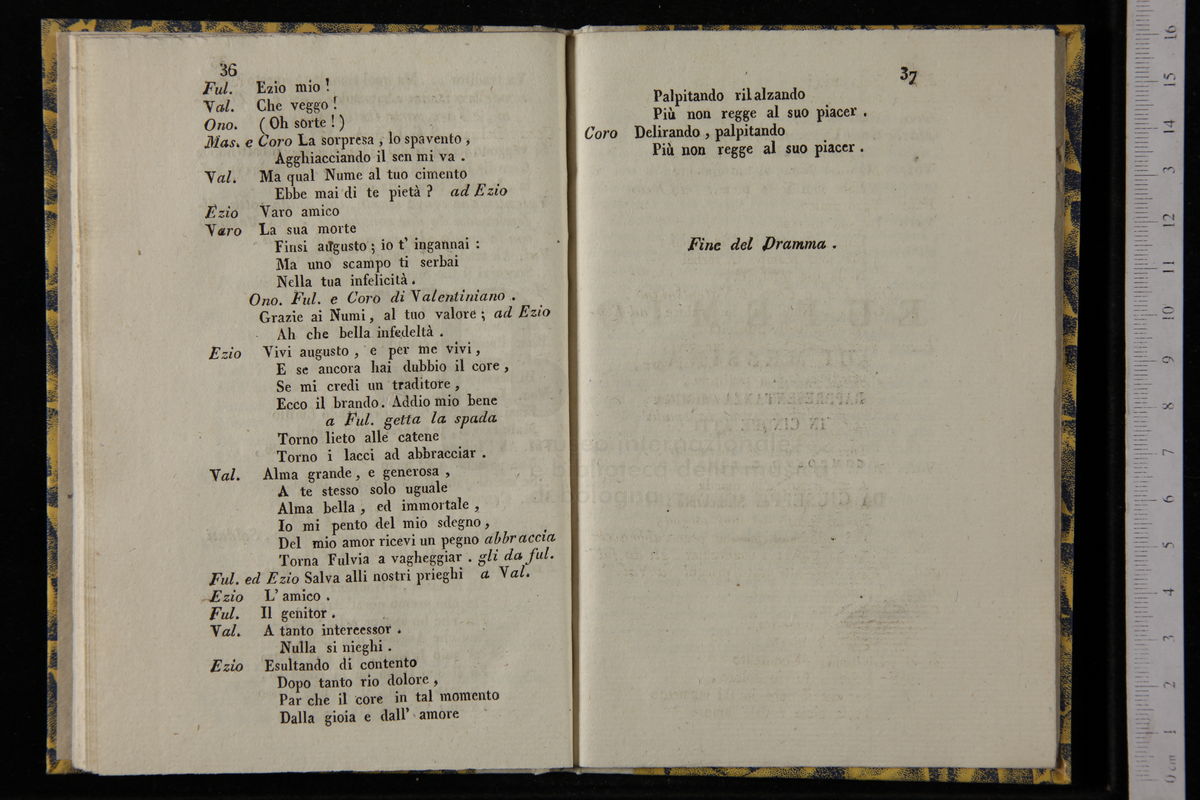 36
Ful. Ezio mio !
Val. Che veggo !
Ono. (Oh sorte !)
Mas. e Coro La sorpresa , lo spavento ,
Agghiacciando il sen mi va .
Val. Ma qual Nume al tuo cimento
Ebbe mai di te pietà ? ad Ezio
Ezio Varo amico
Varo La sua morte
Finsi augusto ; io t' ingannai :
Ma uno scampo ti serbai
Nella tua infelicità .
Ono. Ful. e Coro di Valentiniano .
Grazie ai Numi , al tuo valore ; ad Ezio
Ah che bella infedeltà .
Ezio Vivi augusto , e per me vivi ,
E se ancora hai dubbio il core ,
Se mi credi un traditore ,
Ecco il brando. Addio mio bene
a Ful. getta la spada
Torno lieto alle catene
Torno i lacci ad abbracciar .
Val. Alma grande , e generosa ,
A te stesso solo uguale
Alma bella , ed immortale ,
Io mi pento del mio sdegno ,
Del mio amor ricevi un pegno abbraccia
Torna Fulvia a vagheggiar . gli da ful.
Ful. ed Ezio Salva alli nostri prieghi a Val.
Ezio L' amico .
Ful. Il genitor .
Val. A tanto intercessor .
Nulla si nieghi .
Ezio Esultando di contento
Dopo tanto rio dolore ,
Par che il core in tal momento
Dalla gioia e dall' amore
37
Palpitando rilalzando
Più non regge al suo piacer .
Coro Delirando , palpitando
Più non regge al suo piacer .
Fine del Dramma .
museo internazionale
e biblioteca della musica
di bologna
0 cm 1 2 3 4 5 6 7 8 9 10 11 12 13 14 15 16